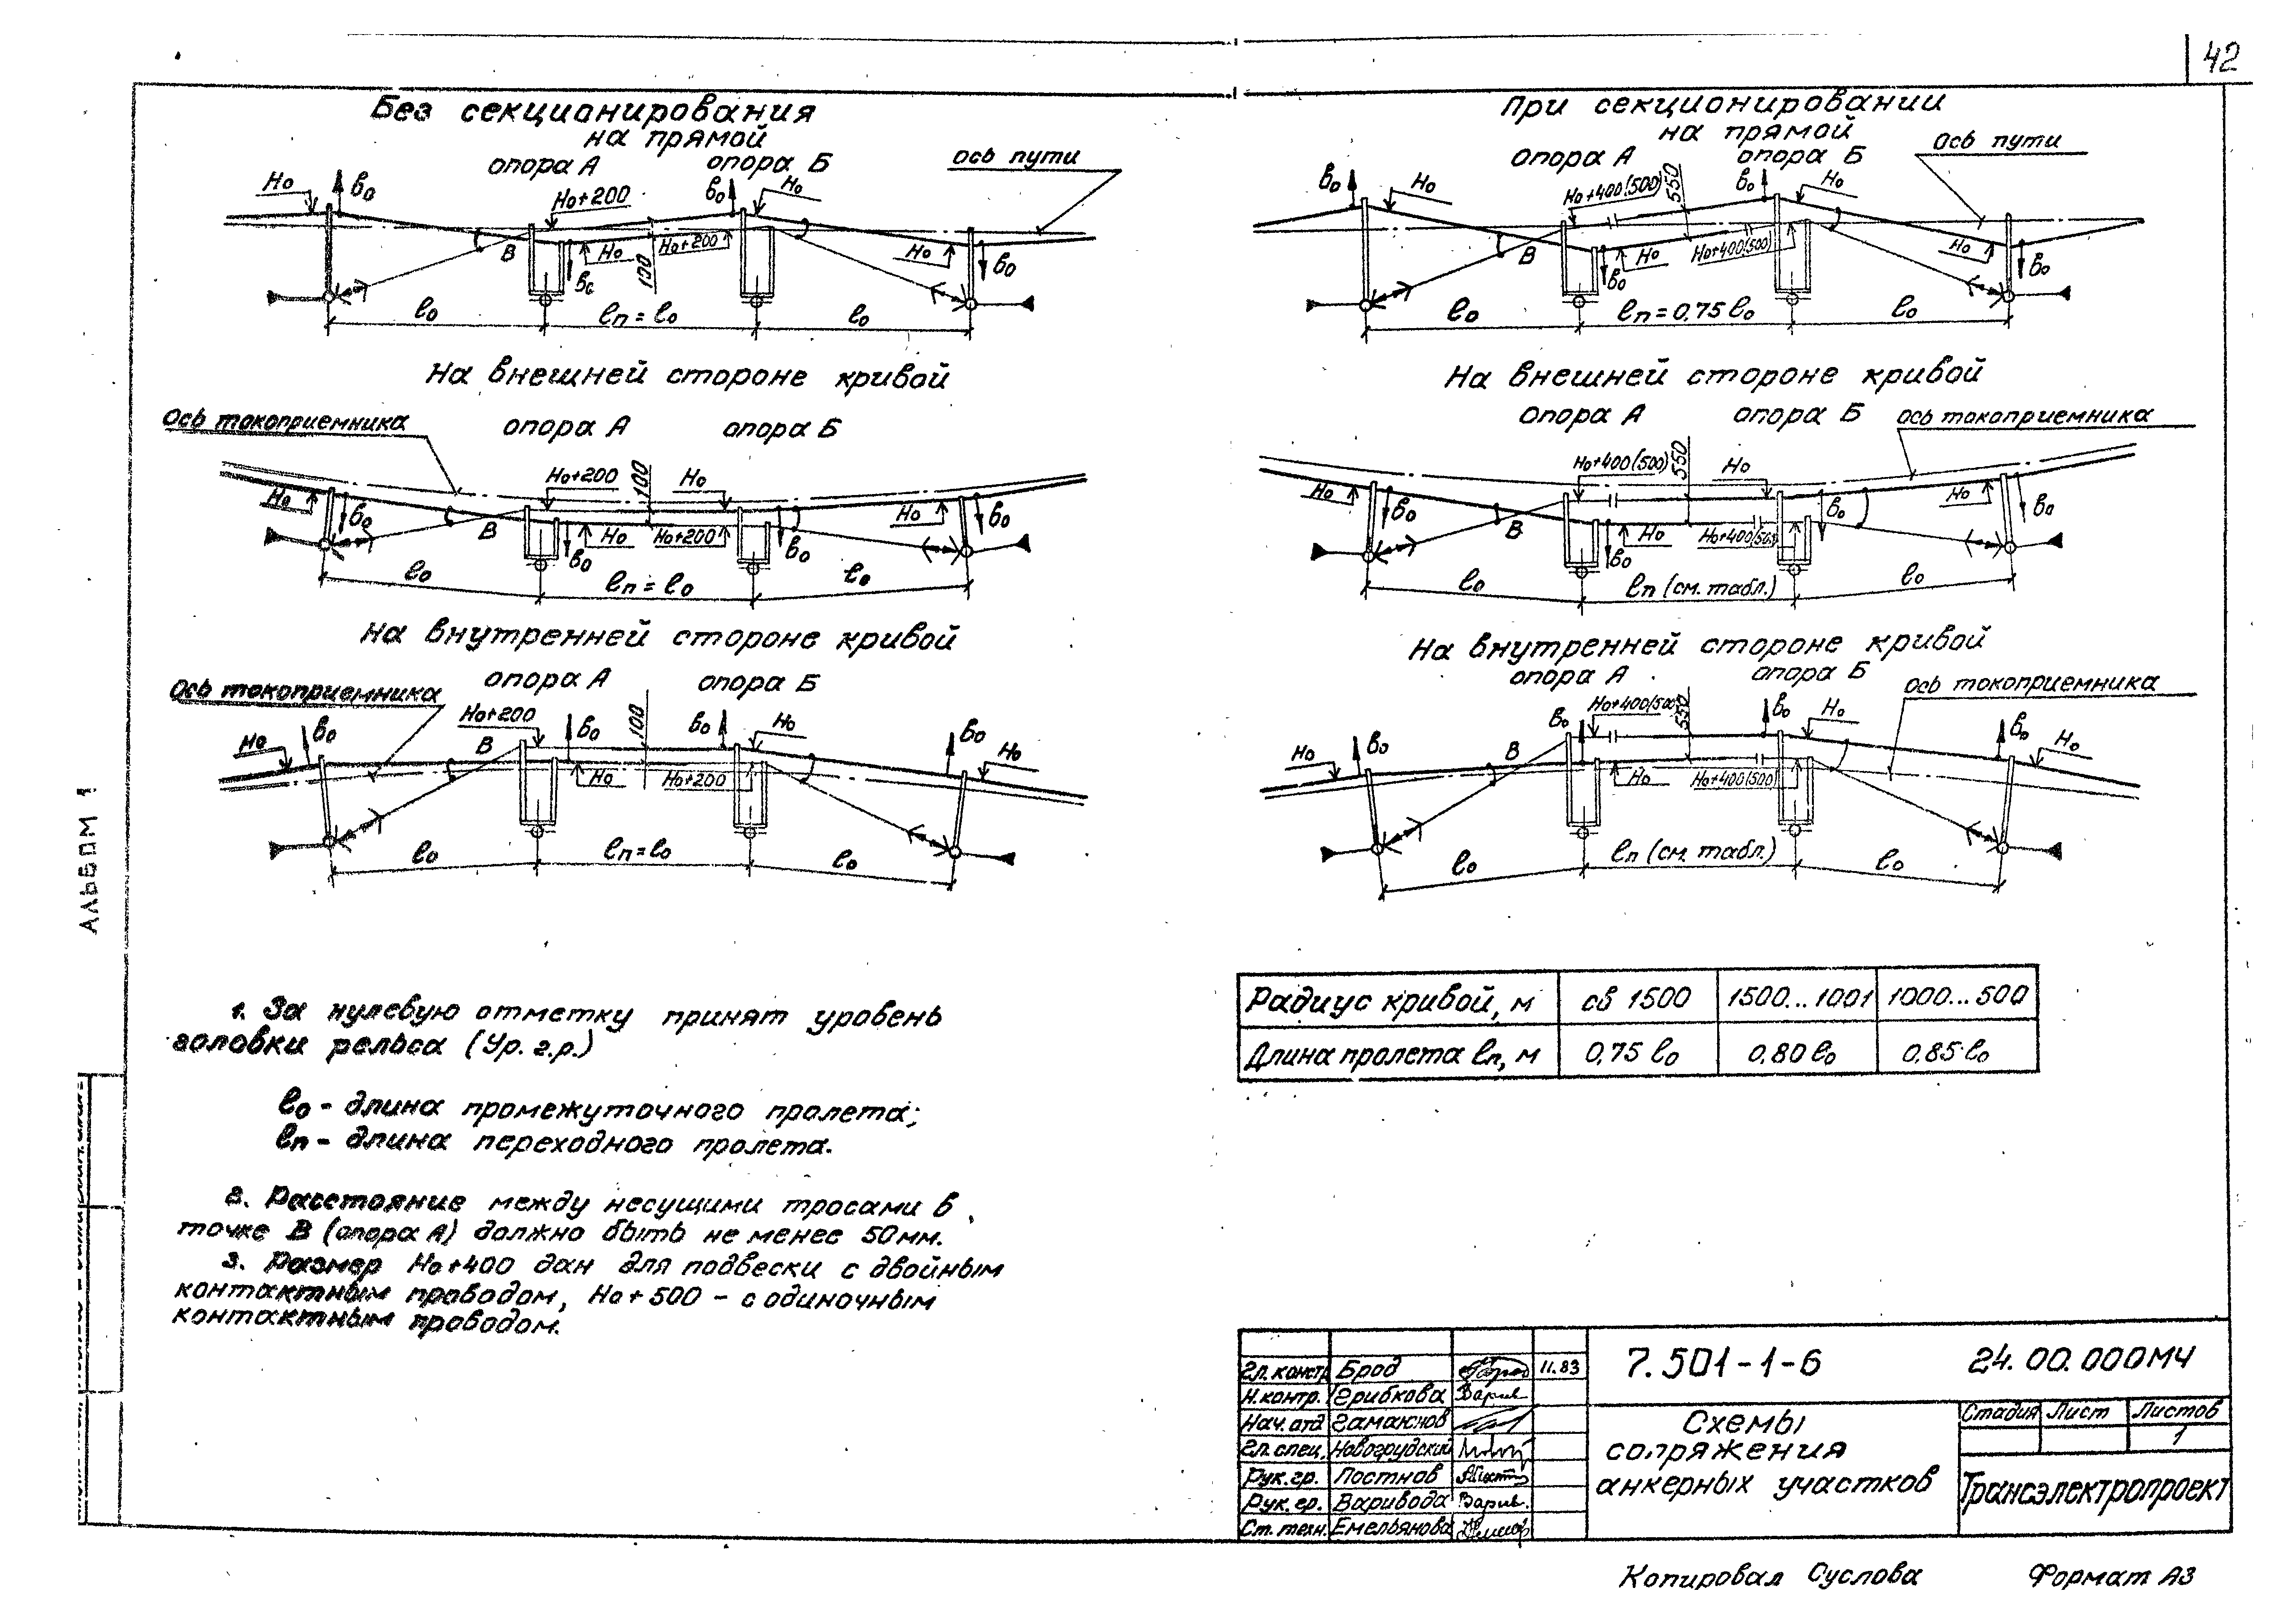 42
Без секционирования
на прямой
опора А опора Б ось пути
Но в₀ Но+200 в₀ Но
В Но Но+200 100 Но в₀
ℓ₀ ℓп = ℓ₀ ℓ₀
На внешней стороне кривой
Ось токоприемника опора А опора Б
Но+200 100 Но
Но в₀ В Но Но+200 Но в₀
в₀ в₀
ℓ₀ ℓп = ℓ₀ ℓ₀
На внутренней стороне кривой
Ось токоприемника опора А опора Б
Но+200 в₀ 100 в₀ Но
Но в₀ В в₀ Но
Но Но+200
ℓ₀ ℓп = ℓ₀ ℓ₀
При секционировании
на прямой
опора А опора Б Ось пути
в₀ Но Но+400(500) 550 в₀ Но
В Но Но+400(500) Но
в₀ в₀
ℓ₀ ℓп = 0,75 ℓ₀ ℓ₀
На внешней стороне кривой
опора А опора Б Ось токоприемника
Но+400(500) 550 Но
Но в₀ В Но в₀ Но в₀
в₀ Но+400(500)
ℓ₀ ℓп (см. табл.) ℓ₀
На внутренней стороне кривой
опора А опора Б Ось токоприемника
в₀ Но+400(500) 550 в₀ Но
Но в₀ В в₀ Но
Но Но+400(500)
ℓ₀ ℓп (см. табл.) ℓ₀
1. За нулевую отметку принят уровень
головки рельса (Ур. г.р.)
ℓ₀ - длина промежуточного пролета;
ℓп - длина переходного пролета.
2. Расстояние между несущими тросами в
точке В (опора А) должно быть не менее 50мм.
3. Размер Но+400 дан для подвески с двойным
контактным проводом, Но+500 - с одиночным
контактным проводом.
Радиус кривой, м св 1500 1500...1001 1000...500
Длина пролета ℓп, м 0,75 ℓ₀ 0.80 ℓ₀ 0.85 ℓ₀
АЛЬБОМ 1
Гл. констр Брод 11.83
Н.контр. Грибкова
Нач. отд Гамаюнов
Гл. спец. Новогрудский
Рук. гр. Постнов
Рук. гр. Варивода
Ст. техн. Емельянова
7.501-1-6 24.00.000МЧ
Схемы
сопряжения
анкерных участков
Стадия Лист Листов
1
Трансэлектропроект
Копировал Суслова Формат А3